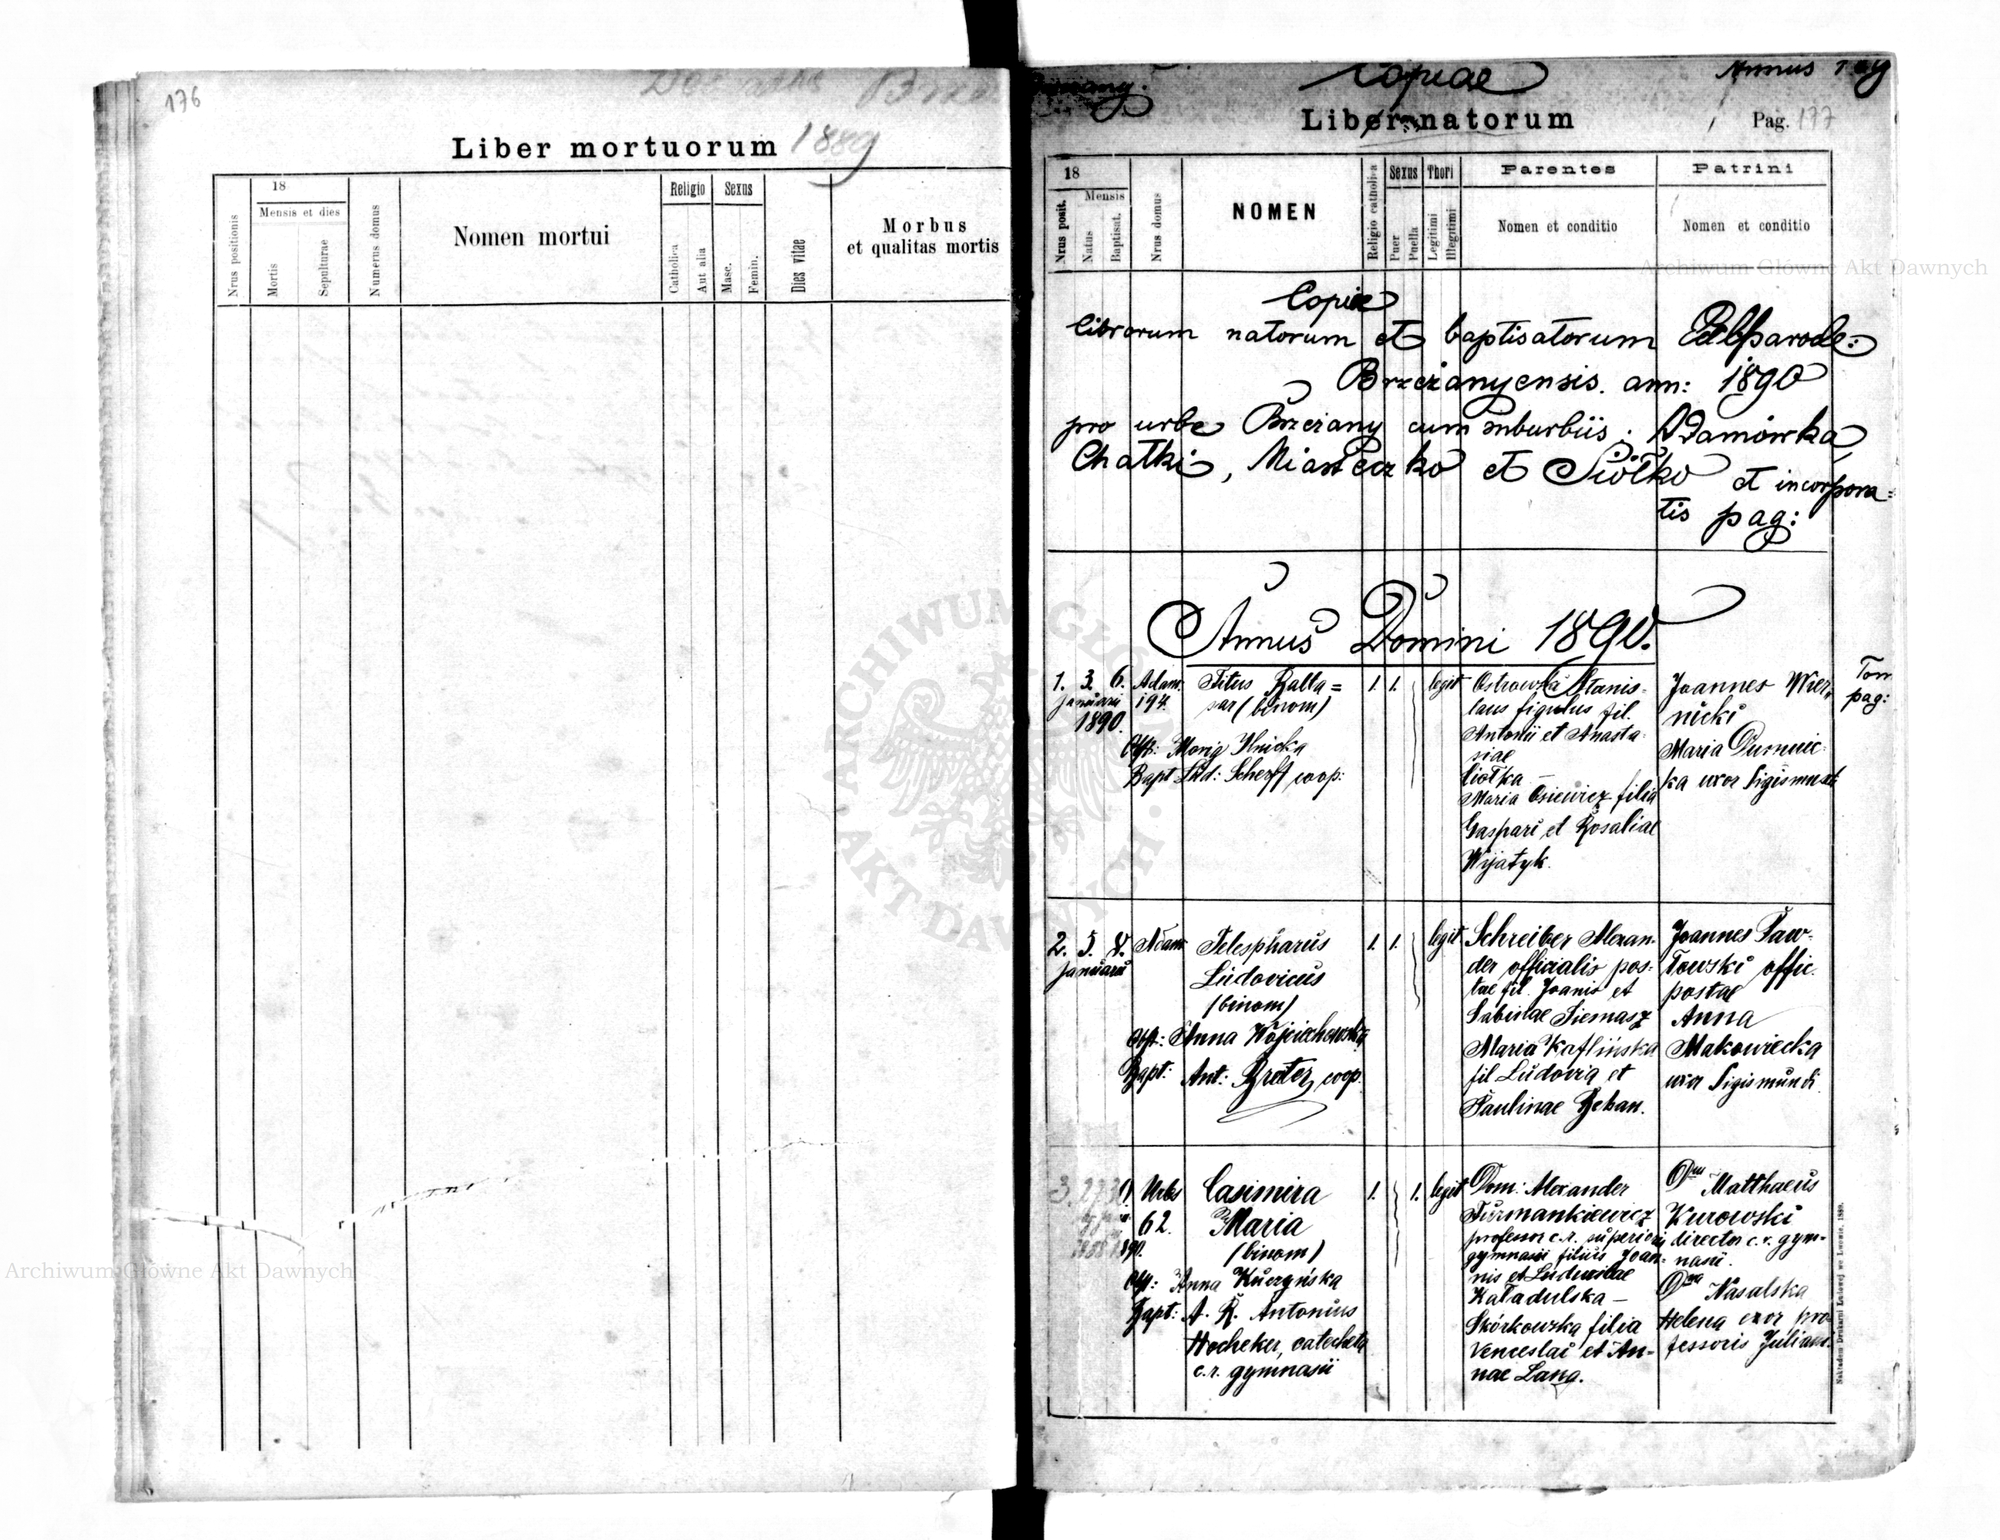 176
Liber mortuorum 1889
Nrus positionis
18
Mensis et dies
Mortis
Sepulturae
Numerus domus
Nomen mortui
Religio
Catholica
Aut alia
Sexus
Masc.
Femin.
Dies vitae
Morbus
et qualitas mortis
Copiae
Annus
Liber natorum
Pag. 177
18
Nrus posit.
Mensis
Natus
Baptisat.
Nrus domus
NOMEN
Religio catholica
Sexus
Puer
Puella
Thori
Legitimi
Illegitimi
Parentes
Nomen et conditio
Patrini
Nomen et conditio
Copiae
librorum natorum et baptisatorum
Brzeżanyensis. ann: 1890
pro urbe Brzeżany cum suburbiis: Adamówka,
Chatki, Miasteczko et Siółko et incorpora=
tis pag:
Annus Domini 1890.
1. 3. 6.
Januarii
1890.
Adam:
194.
Titus Balta=
sar (binom)
Obst: Maria Ilnicka
Bapt: Scherff coop:
1. 1. legit
Ostrowski Stanis-
laus figulus fil.
Antonii et Anasta-
siae
Ciołka —
Maria Osiewicz filia
Gaspari et Rosaliae
Wijatyk.
Joannes Wier-
nicki
Maria Dumnic-
ka uxor Sigismundi
Tom
pag:
2. 5. 8.
Januarii
Adam:
Telesphorus
Ludovicus
(binom)
Obst: Anna Wojciechowska
Bapt: Ant: coop.
1. 1. legit
Schreiber Alexan-
der officialis pos-
tae fil. Joanis et
Sabinae Siemasz
Maria Kaflińska
fil Ludovici et
Paulinae
Joannes Paw-
łowski offic.
postae
Anna
Makowiecka
uxor Sigismundi.
3.
Urbs
62.
Casimira
Maria
(binom)
Obst: Anna Kuczyńska
Bapt: A. R. Antonius
Hocheker, catecheta
c. r. gymnasii
1. 1. legit
Dom: Alexander
Turmankiewicz
professor c. r. superioris
gymnasii filius Joan-
nis et Ludovicae
Kaladulska —
Skórkowska filia
Venceslai et An-
nae Lang.
Dnus Matthaeus
Kurowski
director c. r. gym-
nasii.
Dna Nasalska
Helena uxor pro-
fessoris Juliani.
Nakładem Drukarni Ludowej we Lwowie, 1889.
Archiwum Główne Akt Dawnych
Archiwum Główne Akt Dawnych
ARCHIWUM GŁÓWNE AKT DAWNYCH